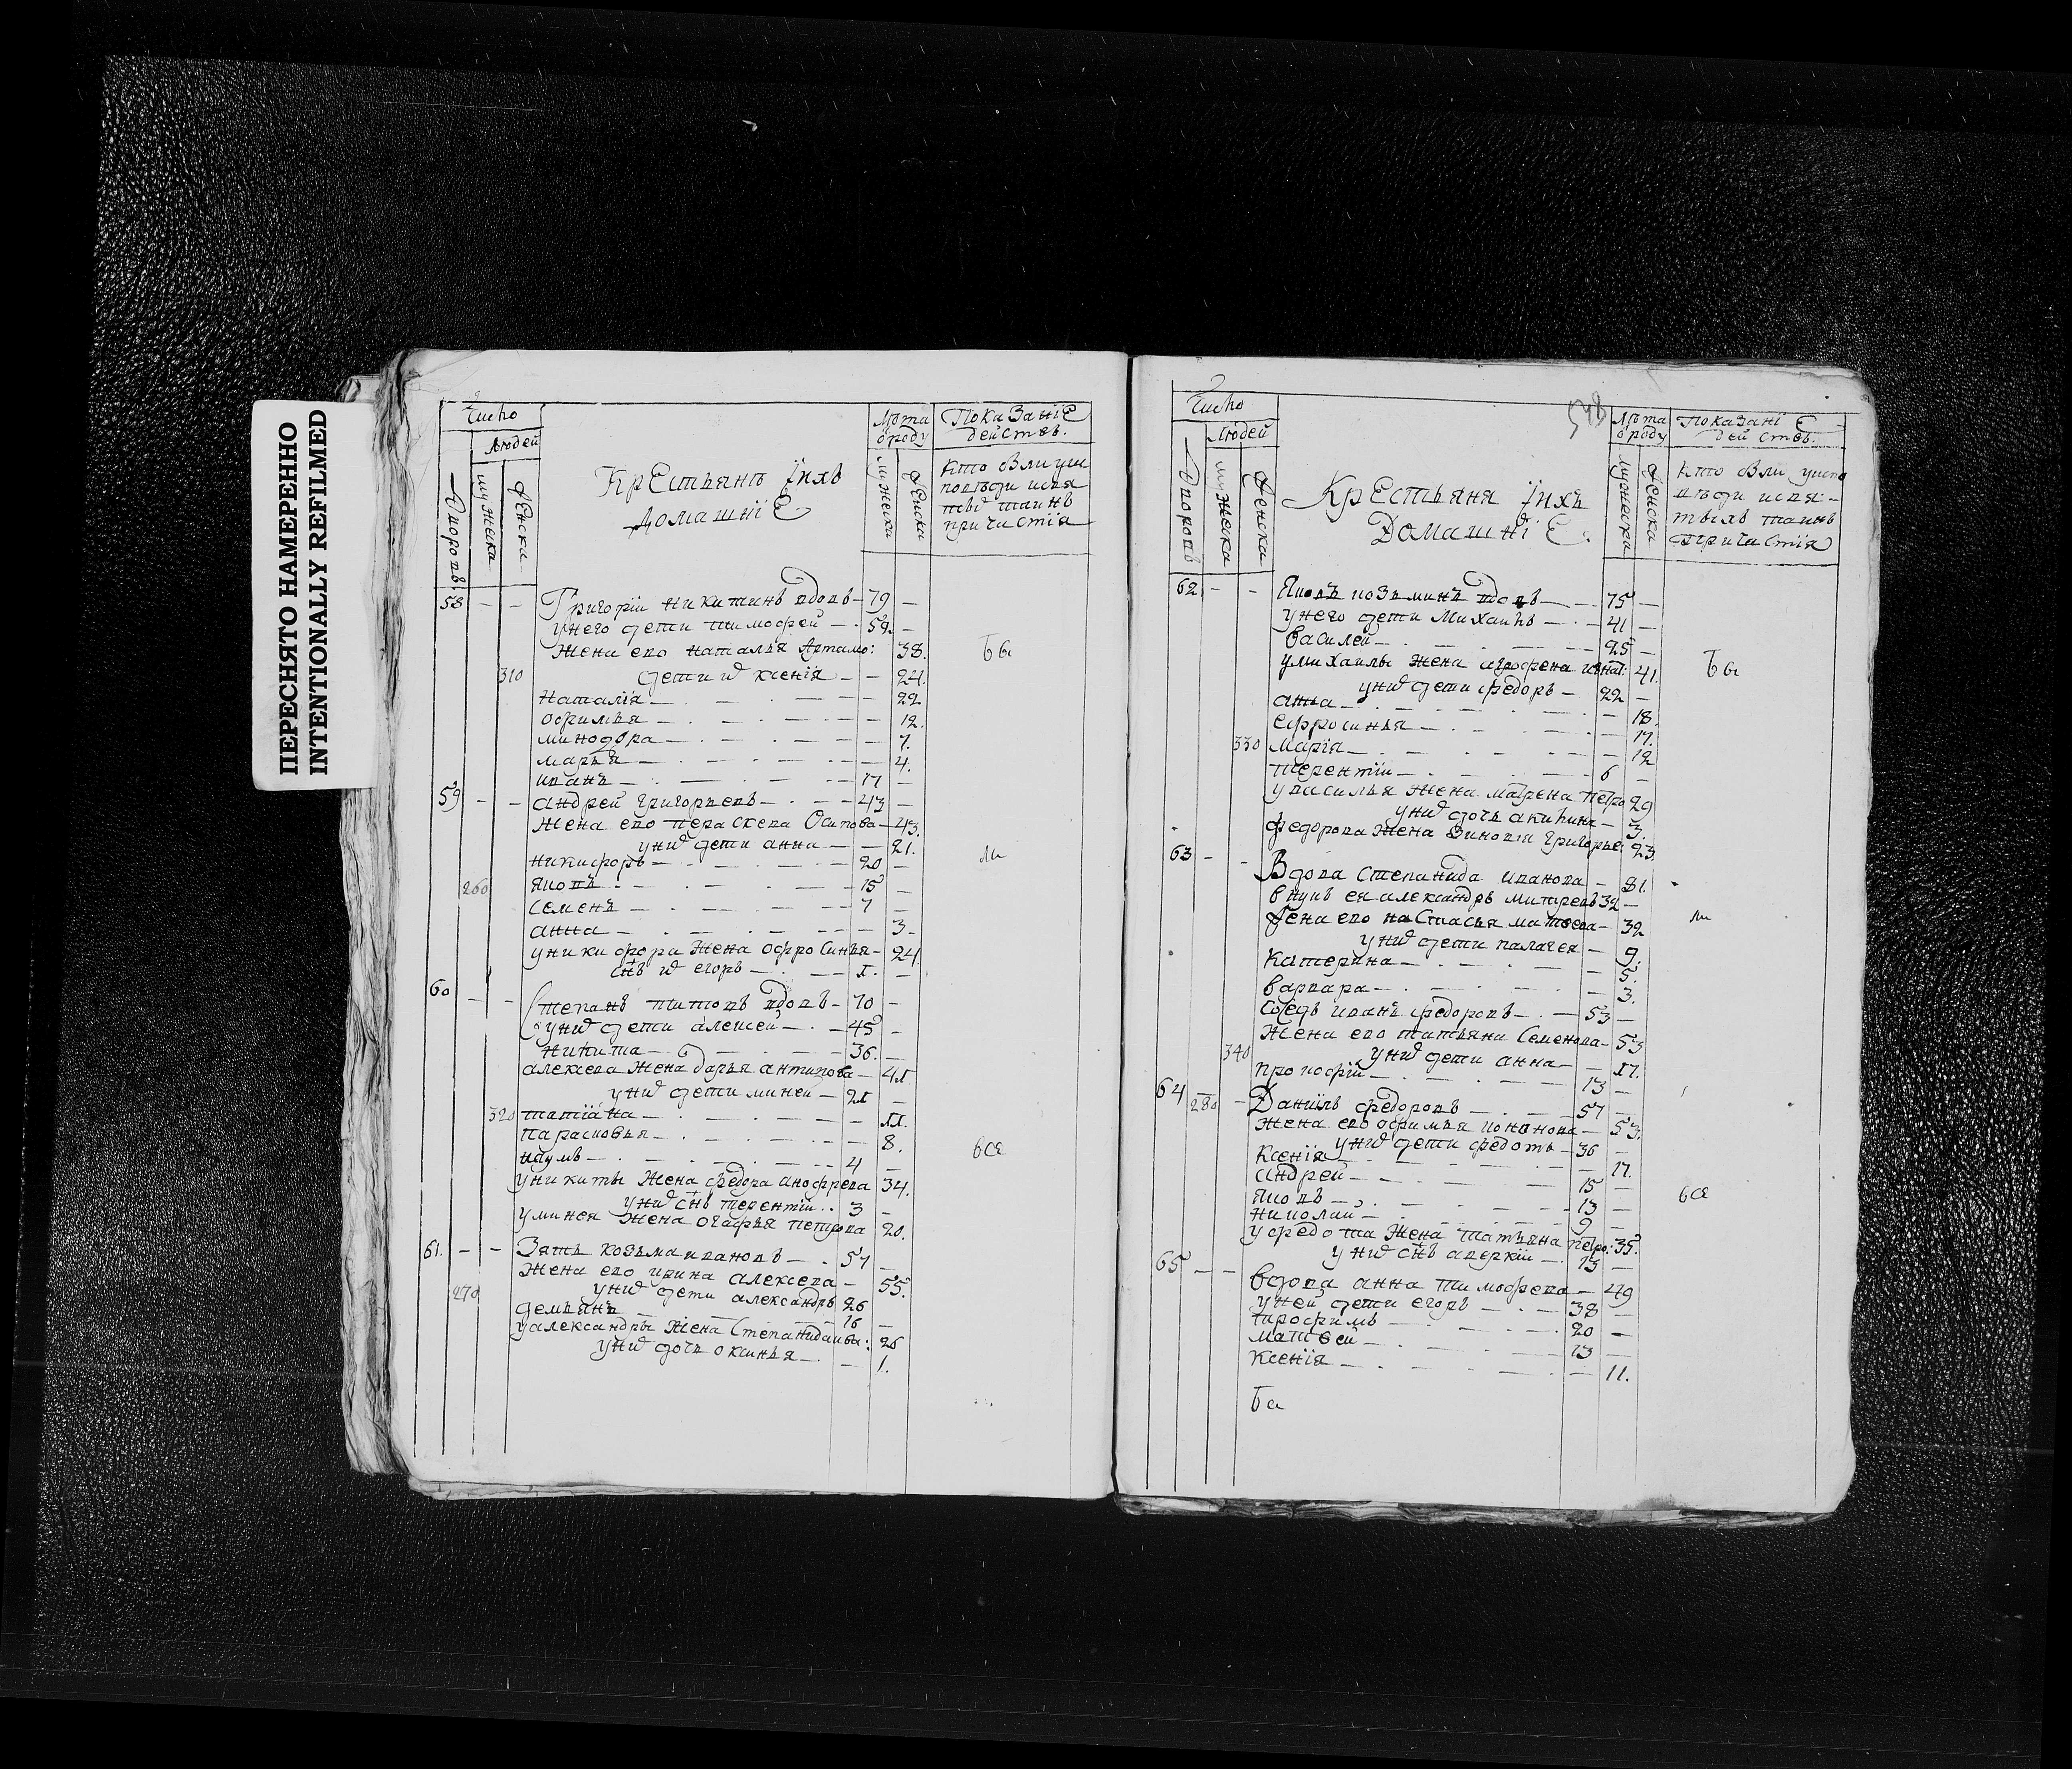 ПЕРЕСНЯТО НАМЕРЕННО
INTENTIONALLY REFILMED
Число
Людей
Дворовъ
мужеска
Женска
Крестьянъ їихъ
домашнїЕ
Лѣта
ѿ роду
мужеска
Женска
ПоказанїЕ
действъ.
кто былъ у испо
ведi и свя
тыѣ таинъ
причастїя
58 - - Григорїи Никитинъ вдовъ - 79 -
у него дети тимофей - 59 -
Жена ево Наталья Артамо: 38.
310 дети иѿ ксенїя - - 24.
Наталїя - 22
офимья - 12.
минодора - 7.
марья - 4.
иванъ - 17 -
59 - - андрей Григорьевъ - 43 -
Жена ево пераскева Осипова - 43.
у ниѿ дети анна - - 21.
никифоръ - 20 -
260 яковъ - 15 -
семенъ - 7 -
анна - 3 -
у никифора Жена офросинья - 24
снъ иѿ егоръ - 1. -
60 - - Степанъ титовъ вдовъ - 70 -
у ниѿ дети алексей - 45 -
никита - 36. -
алексея Жена дарья антипова - 41
у ниѿ дети миней - 21 -
320 татїана - 11.
парасковья - 8.
наумъ - 4 -
у никиты Жена федора анофрева 34.
у ниѿ снъ терентїи 3 -
у минея Жена огафья петрова 20.
61. - - Зять козьма ивановъ - 57 -
Жена ево ирина алексева - 55.
270 у ниѿ дети александръ 26
демьянъ - 16 -
у александры Жена Степанида ива: 26
у ниѿ дочь оксинья - 1.
бы
ли
всЕ
538
Число
Людей
Дворовъ
мужеска
Женска
Крестьяня їихъ
ДомашнїЕ.
Лѣта
ѿ роду
мужеска
Женска
ПоказанїЕ
действъ.
кто былъ у испо
ведi и свя-
тыхъ таинъ
причастїя
62 - - Яковъ козьминъ вдовъ - 75 -
у него дети Михаилъ - 41 -
василей - 25 -
у михаилы Жена агрофена игнат: 41.
у ниѿ дети федоръ - 22 -
анна - 18.
ефросинья - 17.
330 марїя - 12
терентїи - 6 -
у василья Жена матрена петро 29
у ниѿ дочь акилина - 3.
федорова Жена Зиновїя Григорье: 23.
63 - - Вдова Степанида иванова - 81.
внукъ ея александръ митревъ 32 -
Жена ево настасья матвева - 32
у ниѿ дети палагея - 9.
катерина - 5.
варвара - 3.
Соседъ иванъ федоровъ - 53 -
Жена ево татьяна Семенова - 53
340 у ниѿ дети анна - 17.
прокофїи - 13 -
64 280 - Данїилъ федоровъ - 57 -
Жена ево офимья кононова - 53.
у ниѿ дети федотъ - 36 -
Ксенїя - 17.
андрей - 15 -
яковъ - 13 -
николай - 9 -
у федота Жена татьяна петро: 35.
у ниѿ снъ аверкїи - 13 -
65 - - вдова анна тимофева - 49
у ней дети егоръ - 38 -
трофимъ - 20 -
матвей - 13 -
ксенїя - 11.
бы
бы
ли
всЕ